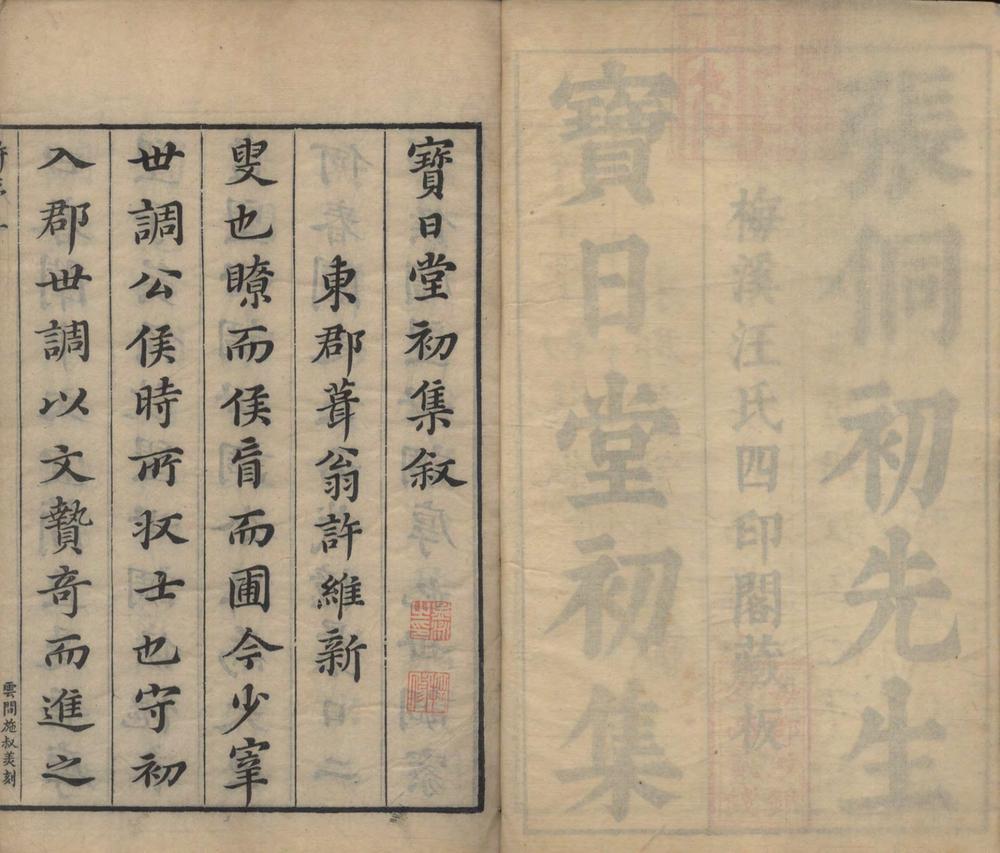 張侗初先生
梅溪汪氏四印閣藏板
寶日堂初集
寶日堂初集敘
東郡葺翁許維新
叟也瞭而侯盲而圃今少宰
世調公侯時所收士也守初
入郡世調以文贄奇而進之
雲間施叔美刻